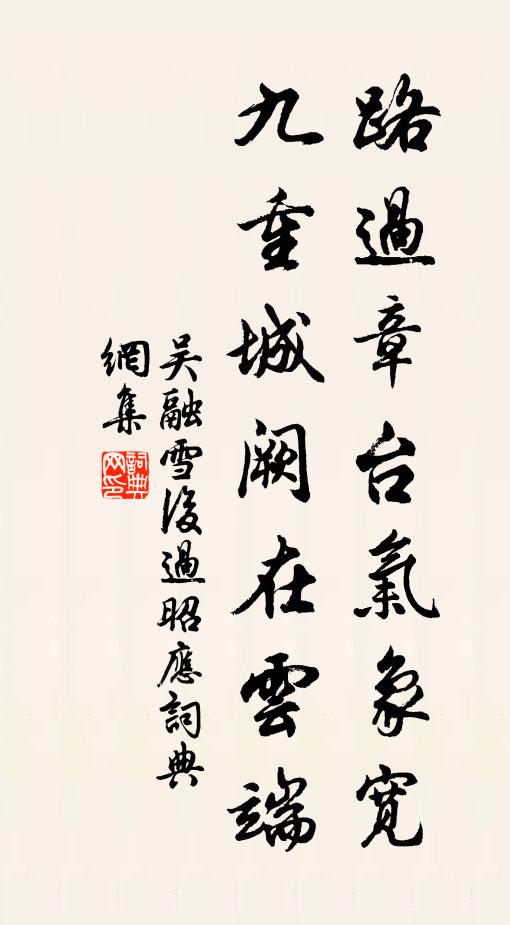 路過章台氣象寬
九重城闕在雲端
吳融雪後過昭應詞典
網集
詞典網印